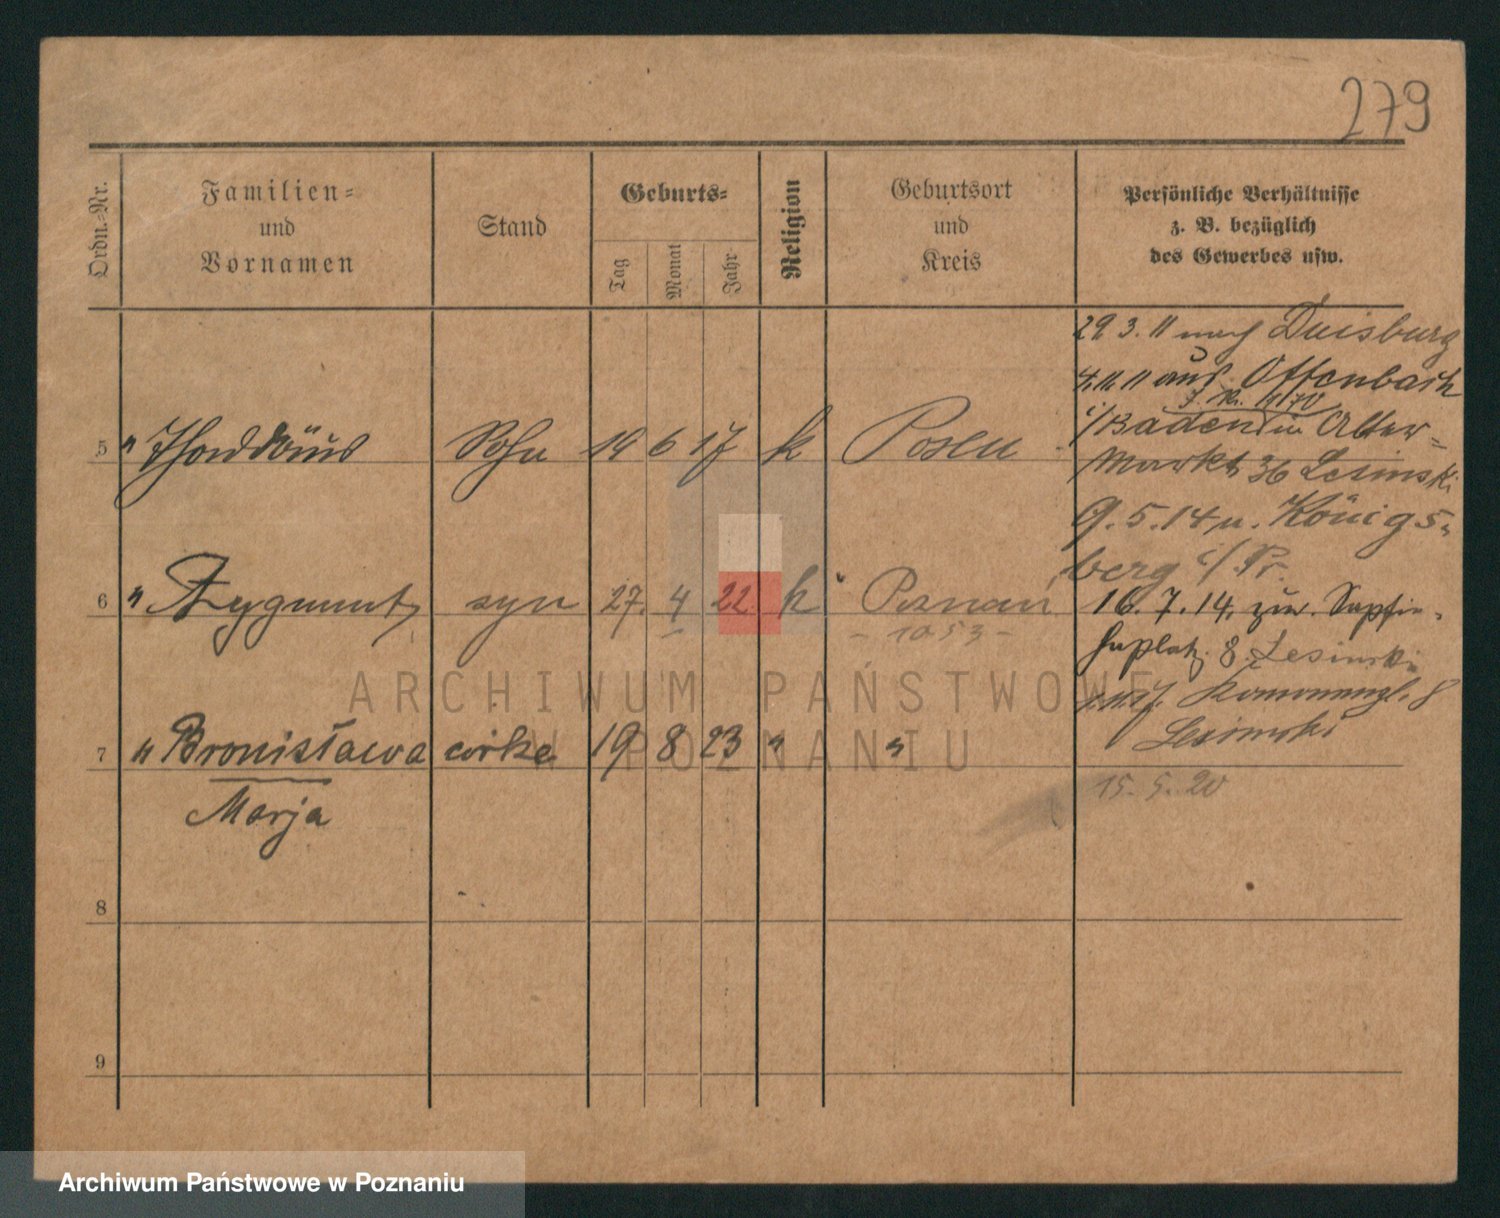 279
Ordn.-Nr.
Familien-
und
Vornamen
Stand
Geburts-
Tag
Monat
Jahr
Religion
Geburtsort
und
Kreis
Persönliche Verhältnisse
z. B. bezüglich
des Gewerbes usw.
29 3. 11 nach Duisburg
4. 11. 11 aus Offenbach
i/Baden Alter-
Markt 36 Lesinski
9. 5. 14 n. Königs-
berg i/Pr.
16. 7. 14. zur. Sapie-
haplatz. 8. Lesinski
Lesinski
15. 5. 20
5 " Thaddäus Sohn 19 6 17 k Posen
6 " Zygmunt syn 27. 4 22. k Poznań
- 1053 -
7 " Bronisława córka 19 8 23 " "
Marja
8
9
ARCHIWUM PAŃSTWOWE
W POZNANIU
Archiwum Państwowe w Poznaniu